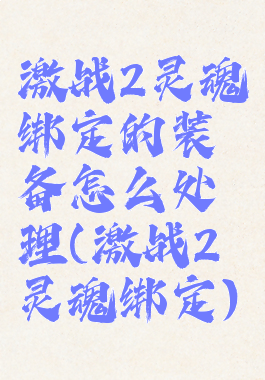 激战2灵魂
绑定的装
备怎么处
理(激战2
灵魂绑定)